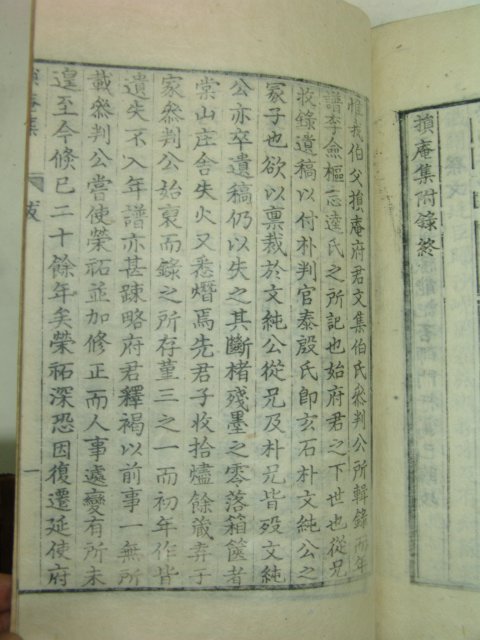 損庵集附錄終
惟我伯父損庵府君文集伯氏參判公所輯錄而年
譜李僉樞志達氏之所記也始府君之下世也從兄
收錄遺稿以付朴判官泰殷氏卽玄石朴文純公之
冢子也欲以稟裁於文純公從兄及朴兄皆歿文純
公亦卒遺稿仍以失之其斷楮殘墨之零落箱篋者
棠山庄舍失火又悉熸焉先君子收拾燼餘藏弆于
家叅判公始裒而錄之所存菫三之一而初年作皆
遺失不入年譜亦甚踈略府君釋褐以前事一無所
載叅判公嘗使榮祏並加修正而人事遽變有所未
遑至今倏已二十餘年矣榮祏深恐因復遷延使府
損庵集 跋 一